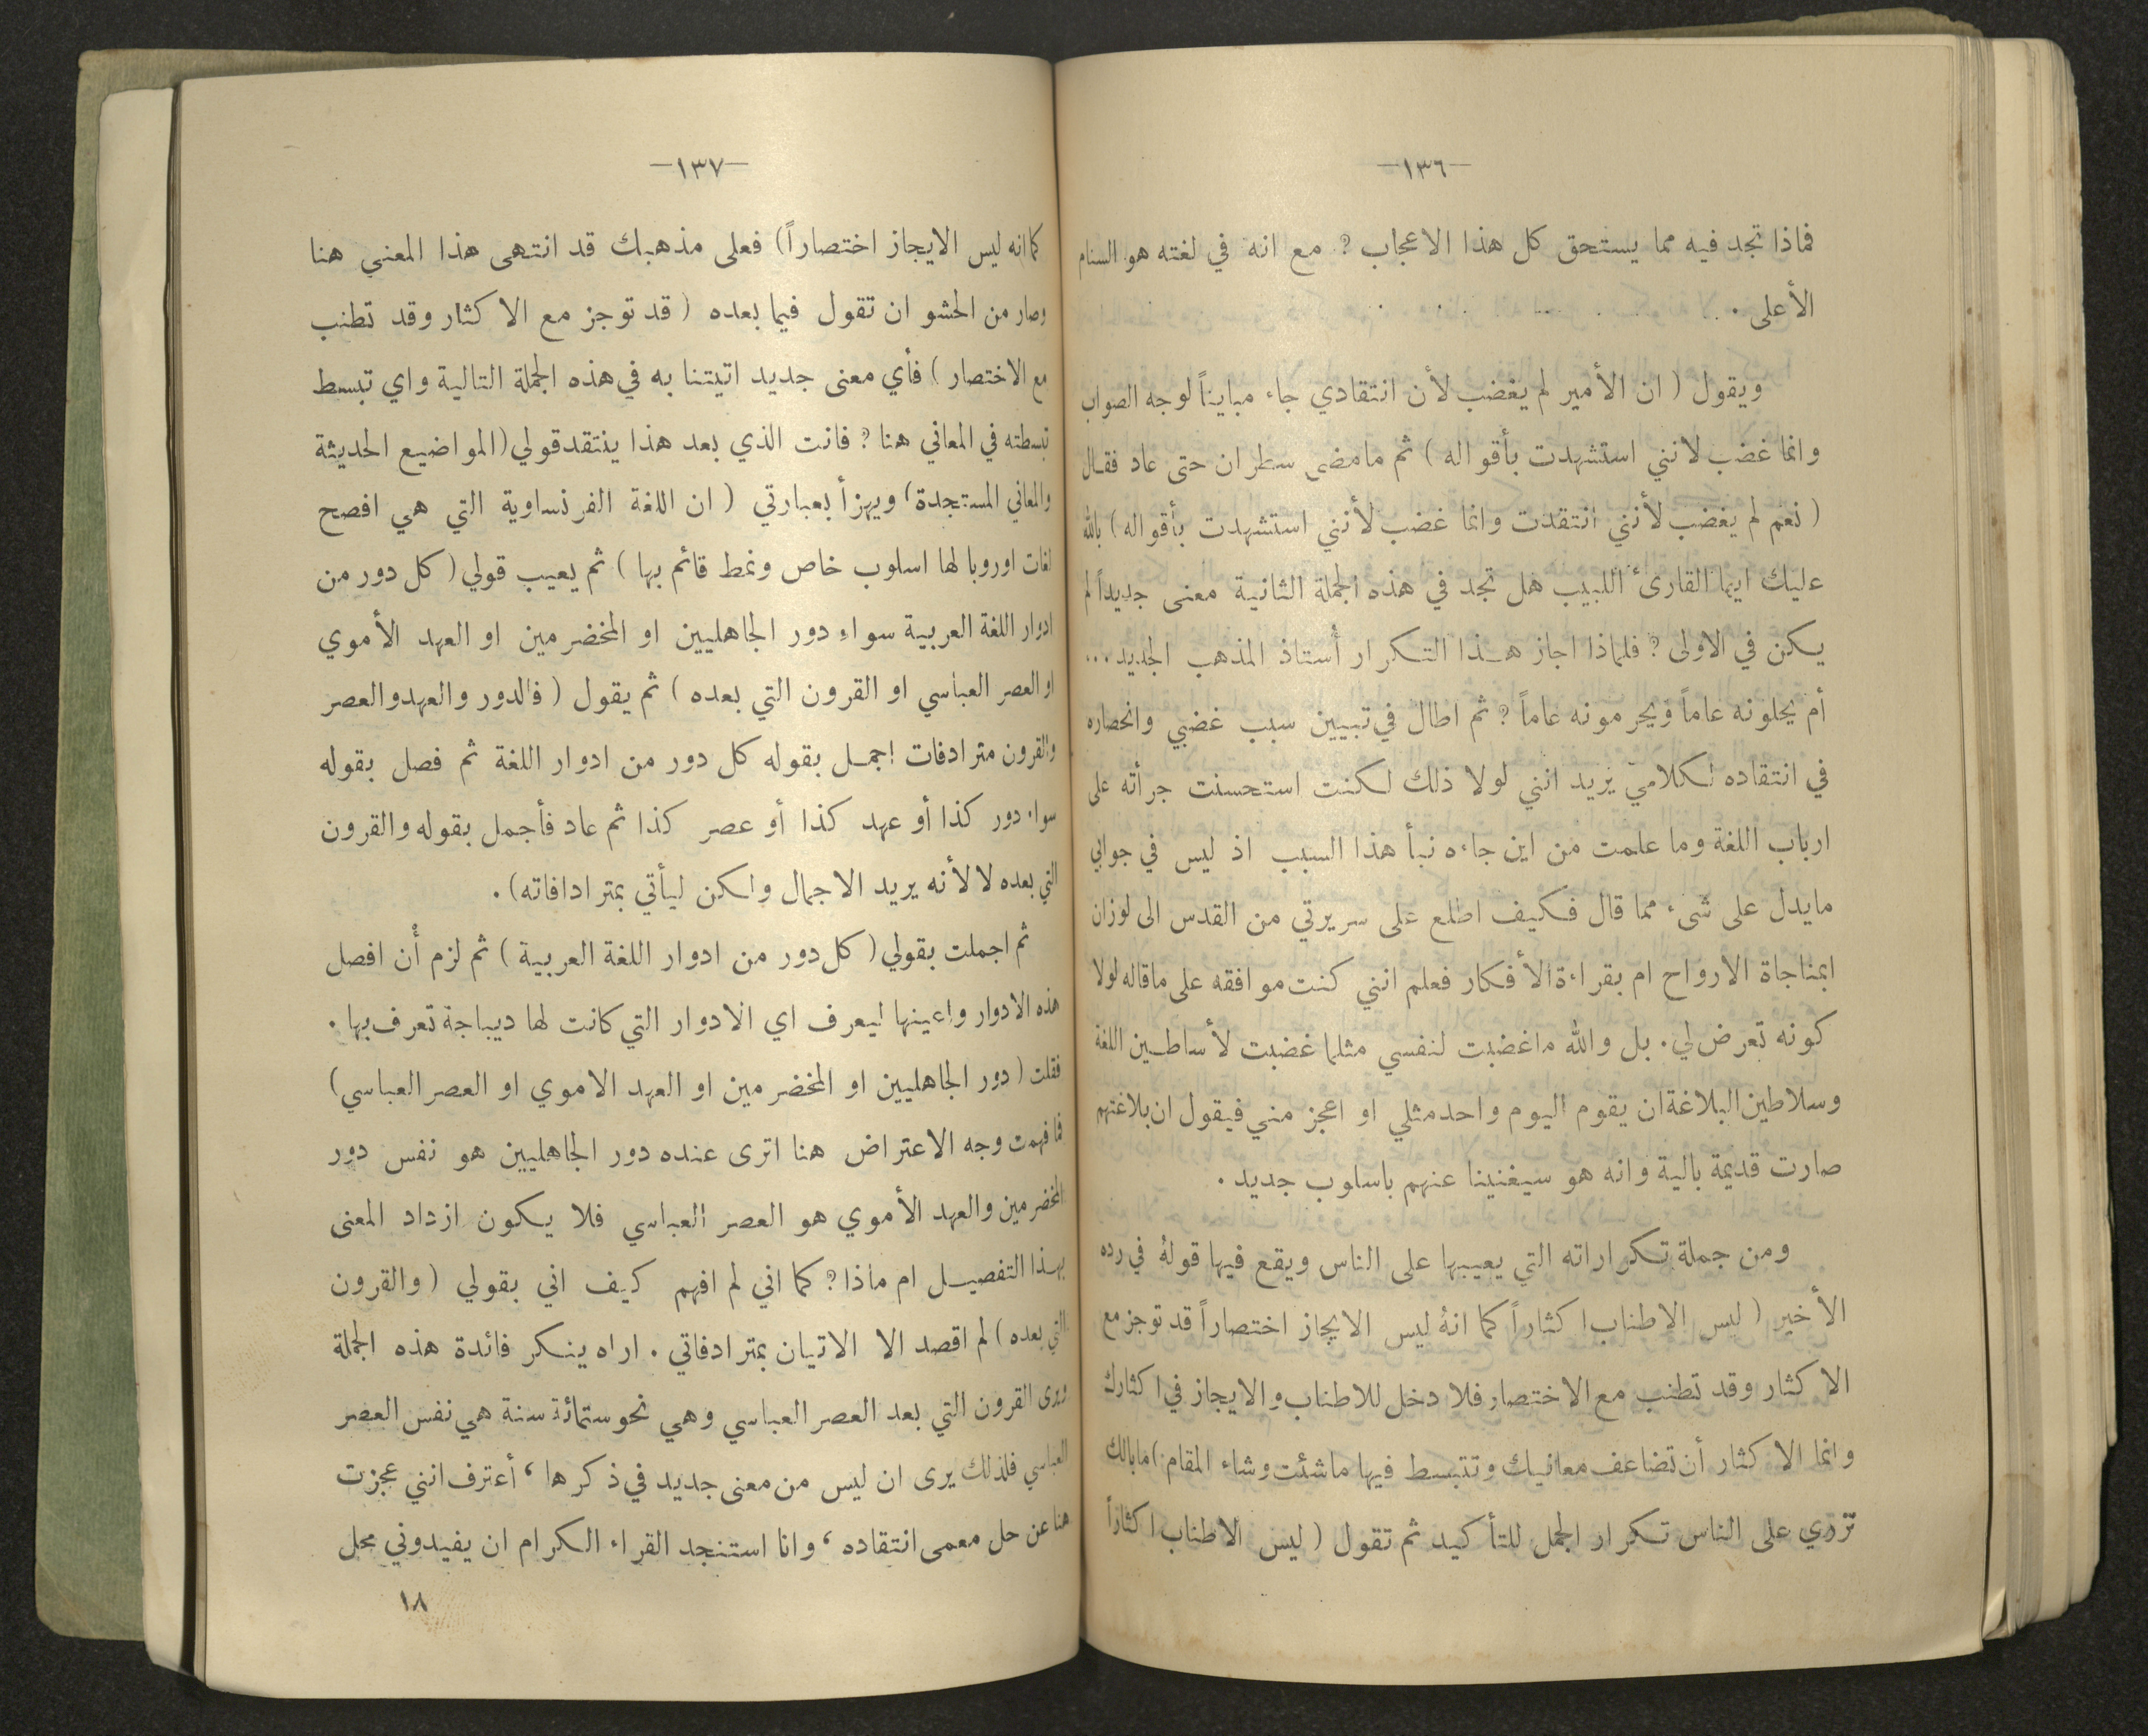 —١٣٦—
فماذا تجد فيه مما يستحق كل هذا الاعجاب ? مع انه في لغته هو السنام
الأعلى .
ويقول ( ان الأمير لم يغضب لأن انتقادي جاء مبايناً لوجه الصواب
وانما غضب لانني استشهدت بأقواله ) ثم مامضى سطران حتى عاد فقال
( نعم لم يغضب لأنني انتقدت وانما غضب لأنني استشهدت بأقواله ) بالله
عليك ايها القارئ اللبيب هل تجد في هذه الجملة الثانية معنى جديداً لم
يكن في الاولى ? فلماذا اجاز هذا التكرار أستاذ المذهب الجديد ...
أم يحلونه عاماً ويحرمونه عاماً ? ثم اطال في تبيين سبب غضبي وانحصاره
في انتقاده لكلامي يريد انني لولا ذلك لكنت استحسنت جرأته على
ارباب اللغة وما علمت من اين جاءه نبأ هذا السبب اذ ليس في جوابي
مايدل على شىء مما قال فكيف اطلع على سريرتي من القدس الى لوزان
ابمناجاة الارواح ام بقراءة الأفكار فعلم انني كنت موافقه على ماقاله لولا
كونه تعرض لي . بل والله ماغضبت لنفسي مثلما غضبت لأساطين اللغة
وسلاطين البلاغة ان يقوم اليوم واحد مثلي او اعجز مني فيقول ان بلاغتهم
صارت قديمة بالية وانه هو سيغنينا عنهم باسلوب جديد .
ومن جملة تكراراته التي يعيبها على الناس ويقع فيها قولهُ في رده
الأخير ( ليس الاطناب اكثاراً كما انهُ ليس الايجاز اختصاراً قد توجز مع
الاكثار وقد تطنب مع الاختصار فلا دخل للاطناب والايجاز في اكثارك
وانما الاكثار أن تضاعف معانيك وتتبسط فيها ماشئت وشاء المقام ) مابالك
تزري على الناس تكرار الجمل للتأكيد ثم تقول ( ليس الاطناب اكثاراً
—١٣٧—
كما انه ليس الايجاز اختصاراً ) فعلى مذهبك قد انتهى هذا المعنى هنا
وصار من الحشو ان تقول فيما بعده ( قد توجز مع الاكثار وقد تطنب
مع الاختصار ) فأي معنى جديد اتيتنا به في هذه الجملة التالية واي تبسط
تبسطته في المعاني هنا ? فانت الذي بعد هذا ينتقد قولي ( المواضيع الحديثة
والمعاني المستجدة ) ويهزأ بعبارتي ( ان اللغة الفرنساوية التي هي افصح
لغات اوروبا لها اسلوب خاص ونمط قائم بها ) ثم يعيب قولي ( كل دور من
ادوار اللغة العربية سواء دور الجاهليين او المخضرمين او العهد الأموي
او العصر العباسي او القرون التي بعده ) ثم يقول ( فالدور والعهد والعصر
والقرون مترادفات اجمل بقوله كل دور من ادوار اللغة ثم فصل بقوله
سواء دور كذا أو عهد كذا أو عصر كذا ثم عاد فأجمل بقوله والقرون
التي بعده لا لأنه يريد الاجمال ولكن ليأتي بمترادافاته ) .
ثم اجملت بقولي ( كل دور من ادوار اللغة العربية ) ثم لزم أن افصل
هذه الادوار واعينها ليعرف اي الادوار التي كانت لها ديباجة تعرف بها .
فقلت ( دور الجاهليين او المخضرمين او العهد الاموي او العصر العباسي )
فما فهمت وجه الاعتراض هنا اترى عنده دور الجاهليين هو نفس دور
المخضرمين والعهد الأموي هو العصر العباسي فلا يكون ازداد المعنى
بهذا التفصيل ام ماذا ? كما اني لم افهم كيف اني بقولي ( والقرون
التي بعده ) لم اقصد الا الاتيان بمترادفاتي . اراه ينكر فائدة هذه الجملة
ويرى القرون التي بعد العصر العباسي وهي نحو ستمائة سنة هي نفس العصر
العباسي فلذلك يرى ان ليس من معنى جديد في ذكرها ، أعترف انني عجزت
هنا عن حل معمى انتقاده ، وانا استنجد القراء الكرام ان يفيدوني بحل
١٨